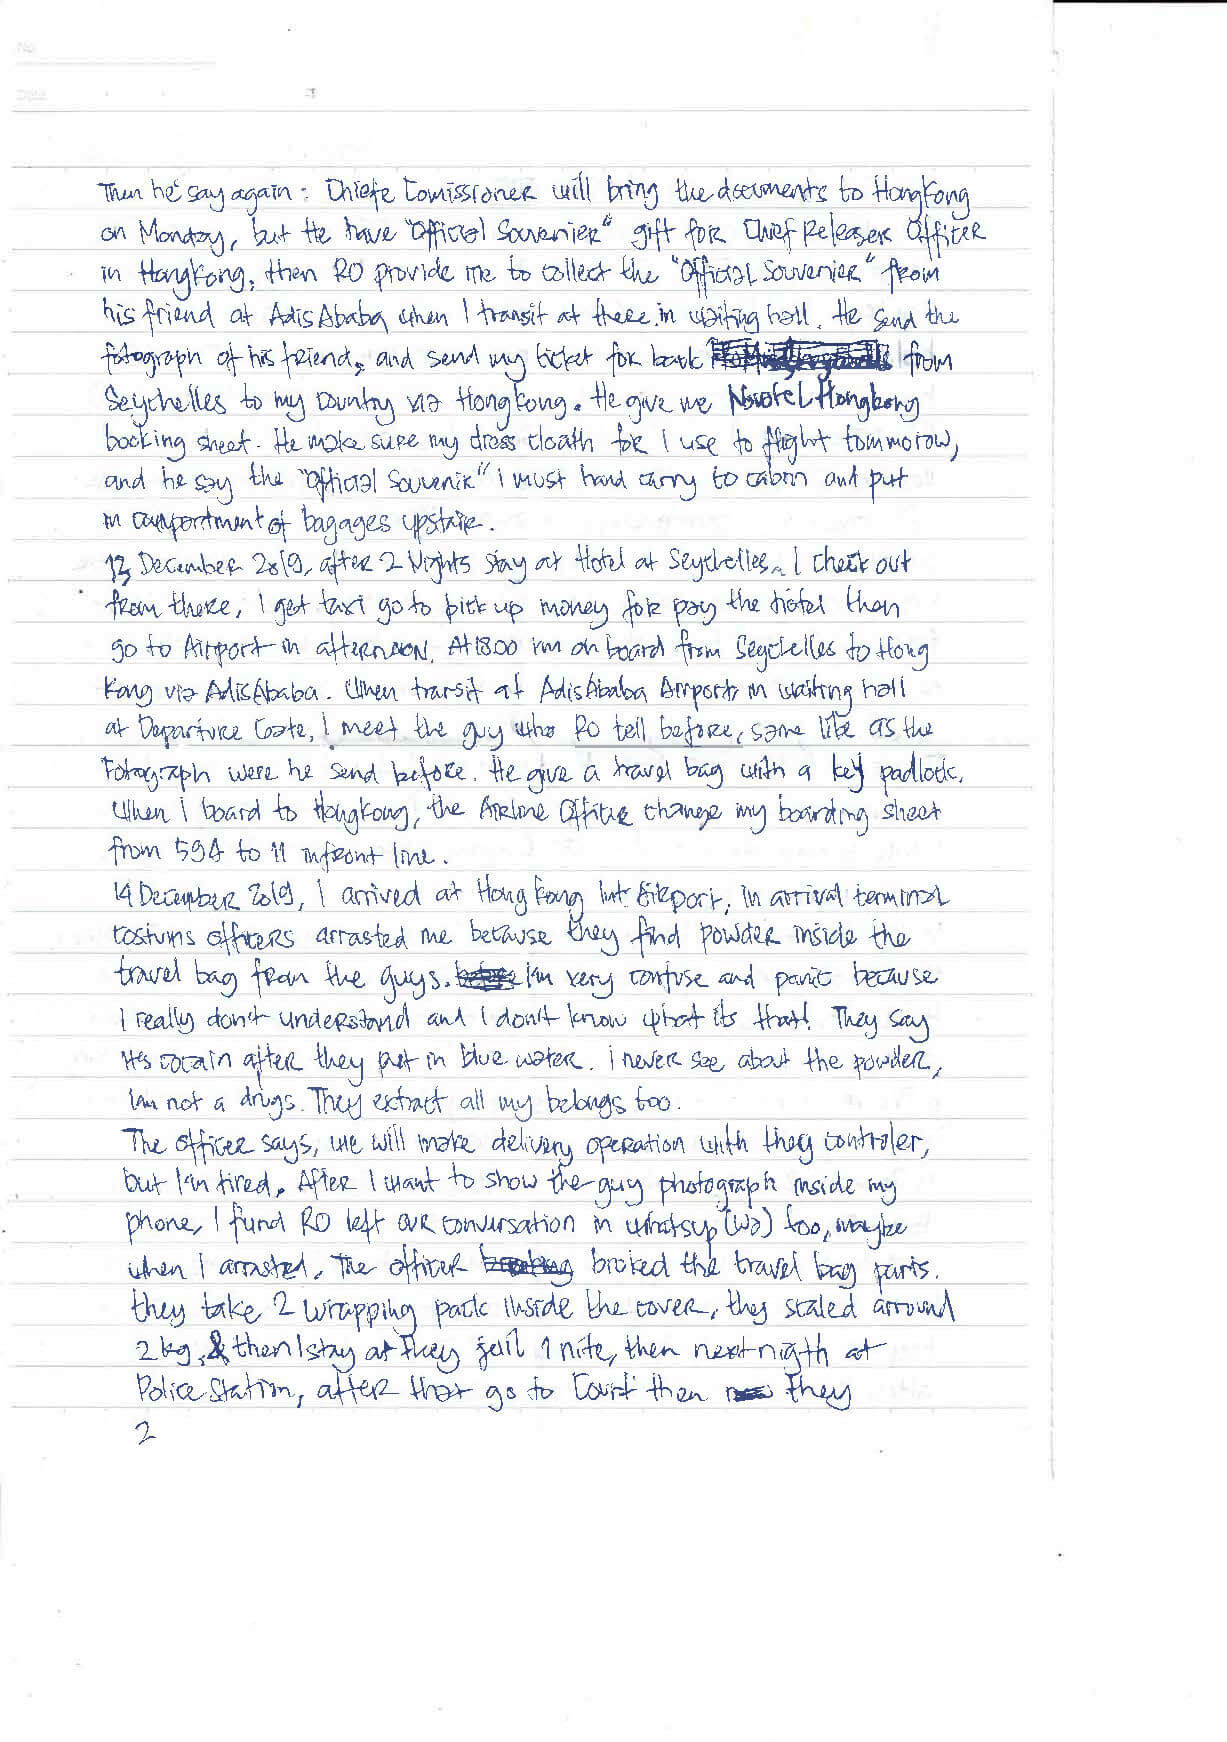 No
Date
Then he say again : Chiefe Comissioner will bring the documents to Hongkong
on Monday, but He have "Official Souvenier" gift for Chief Releaser Officer
in Hongkong, then RO provide me to collect the "Official Souvenier" from
his friend at AdisAbaba when I transit at there in waiting hall. He send the
fotograph of his friend, and send my ticket for back from
Seychelles to my country via Hongkong. He give me Novotel Hongkong
booking sheet. He make sure my dress cloath for I use to flight tommorow,
and he say the "Official Souvenir" I must hand carry to cabin and put
in compartment of bagages upstair.
13 December 2019, after 2 Nights stay at Hotel at Seychelles, I check out
from there, I get taxi go to pick up money for pay the hotel then
go to Airport in afternoon. At 1800 I'm on board from Seychelles to Hong
Kong via AdisAbaba. When transit at AdisAbaba Airport, in waiting hall
at Departure Gate, I meet the guy who RO tell before, same like as the
Fotograph were he send before. He give a travel bag with a key padlock.
When I board to Hongkong, the Airline Officer change my boarding sheet
from 59A to 11 infront line.
14 December 2019, I arrived at Hong Kong Int. Airport, In arrival terminal
costums officers arrasted me because they find powder inside the
travel bag from the guys. I'm very confuse and panic because
I really don't understand and I don't know what its that! They say
it's cocain after they put in blue water. I never see about the powder,
I'am not a drugs. They extract all my belongs too.
The officer says, we will make delivery operation with they controler,
but I'm tired. After I want to show the guy photograph inside my
phone, I fund RO left our conversation in whatsup (wa) too, maybe
when I arrasted. The officer broked the travel bag parts.
they take 2 wrapping pack inside the cover, they scaled arround
2 kg, & then I stay at They jail 1 nite, then next nigth at
Police Station, after that go to Court then They
2